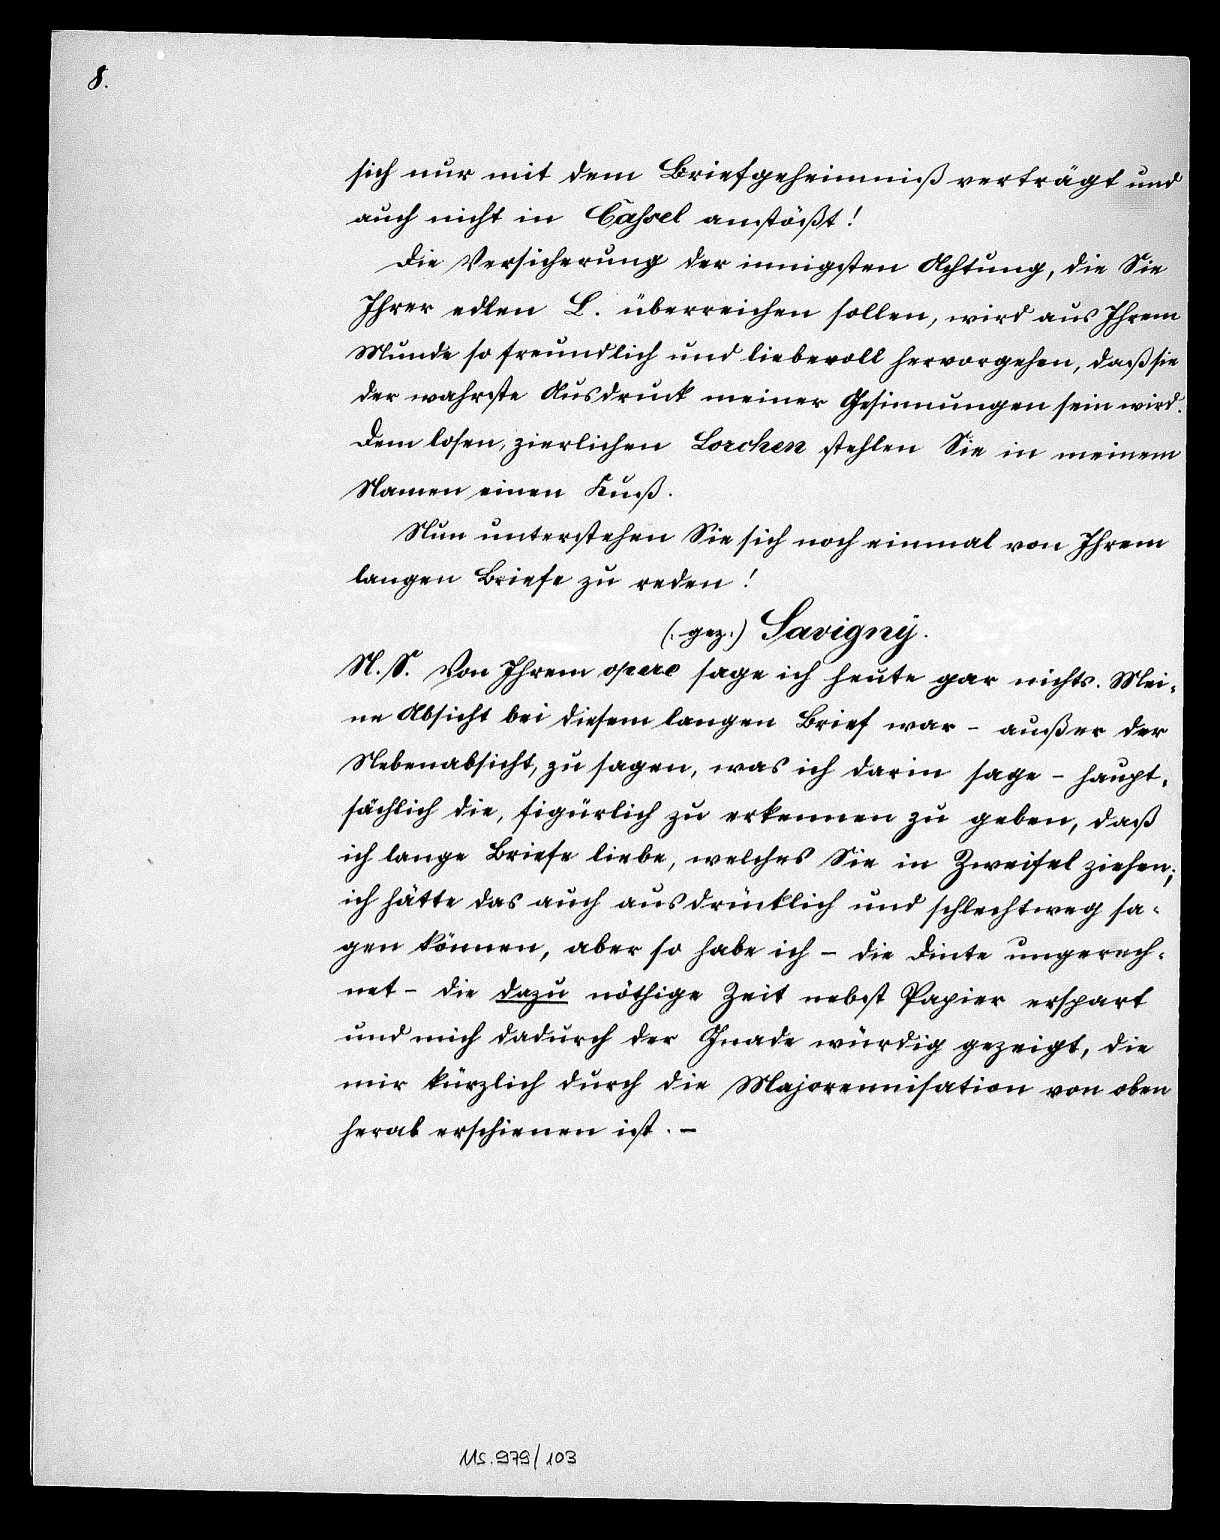 8.
sich nur mit dem Briefgeheimniß verträgt und
auch nicht in Cassel anstößt!
Die Versicherung der innigsten Achtung, die Sie
Ihrer edlen L. überreichen sollen, wird aus Ihrem
Munde so freundlich und liebevoll hervorgehen, daß sie
der wahrste Ausdruck meiner Gesinnungen sein wird.
Dem losen, zierlichen Lorchen stehlen Sie in meinem
Namen einen Kuß.
Nun unterstehen Sie sich noch einmal von Ihrem
langen Briefe zu reden!
(: gez:) Savigny.
N. S. Von Ihrem opere sage ich heute gar nichts. Mei-
ne Absicht bei diesem langen Brief war - außer der
Nebenabsicht, zu sagen, was ich darin sage - haupt-
sächlich die, figürlich zu erkennen zu geben, daß
ich lange Briefe liebe, welches Sie in Zweifel ziehen;
ich hätte das auch ausdrücklich und schlechtweg sa-
gen können, aber so habe ich - die Dinte ungerech-
net - die dazu nöthige Zeit nebst Papier erspart
und mich dadurch der Gnade würdig gezeigt, die
mir kürzlich durch die Majorennisation von oben
herab erschienen ist. -
Ms. 979/103